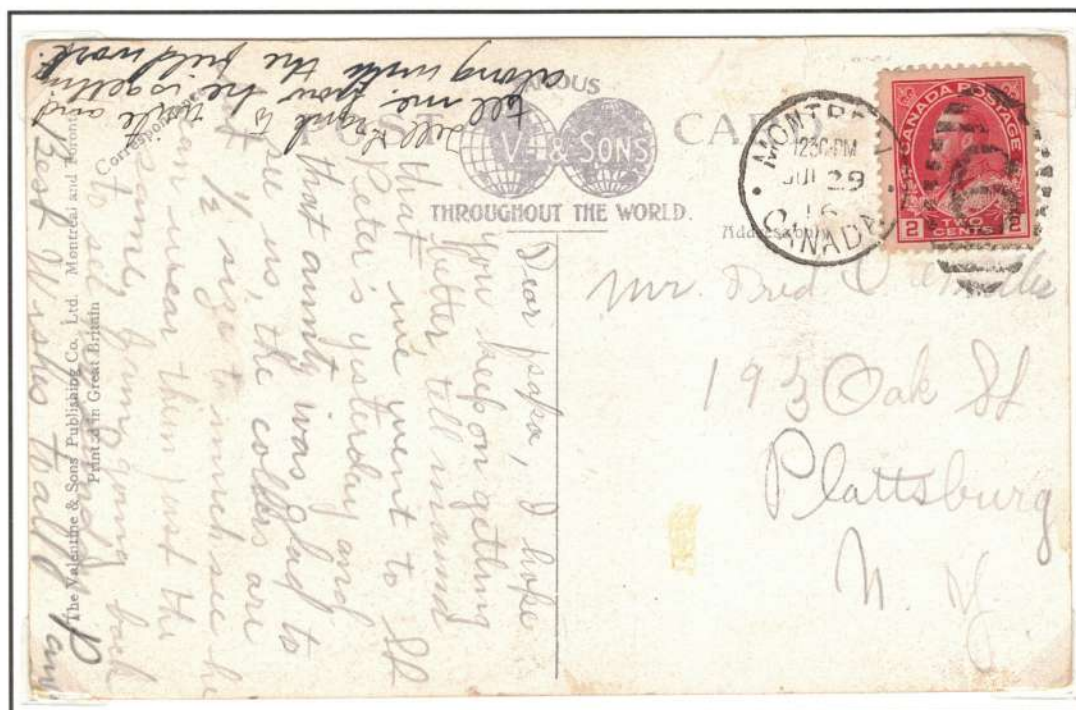 FAMOUS
POST CARD
V & SONS
THROUGHOUT THE WORLD.
Correspondence
Address
MONTREAL
1230 PM
JUL 29
16
CANADA
CANADA POSTAGE
2 TWO CENTS 2
The Valentine & Sons Publishing Co., Ltd. Montreal and Toronto
Printed in Great Britain
Mr. Fred
193 Oak St
Plattsburg
N. Y.
Dear papa, I hope
you keep on getting
better, tell mama
that we went to St
Peter's yesterday and
that aunty was glad to
see us, the collars are
1/2 size to much see he
can wear them just the
same,
going back
to see
Best Wishes to all
write and
tell me how he is getting
along with the field work.